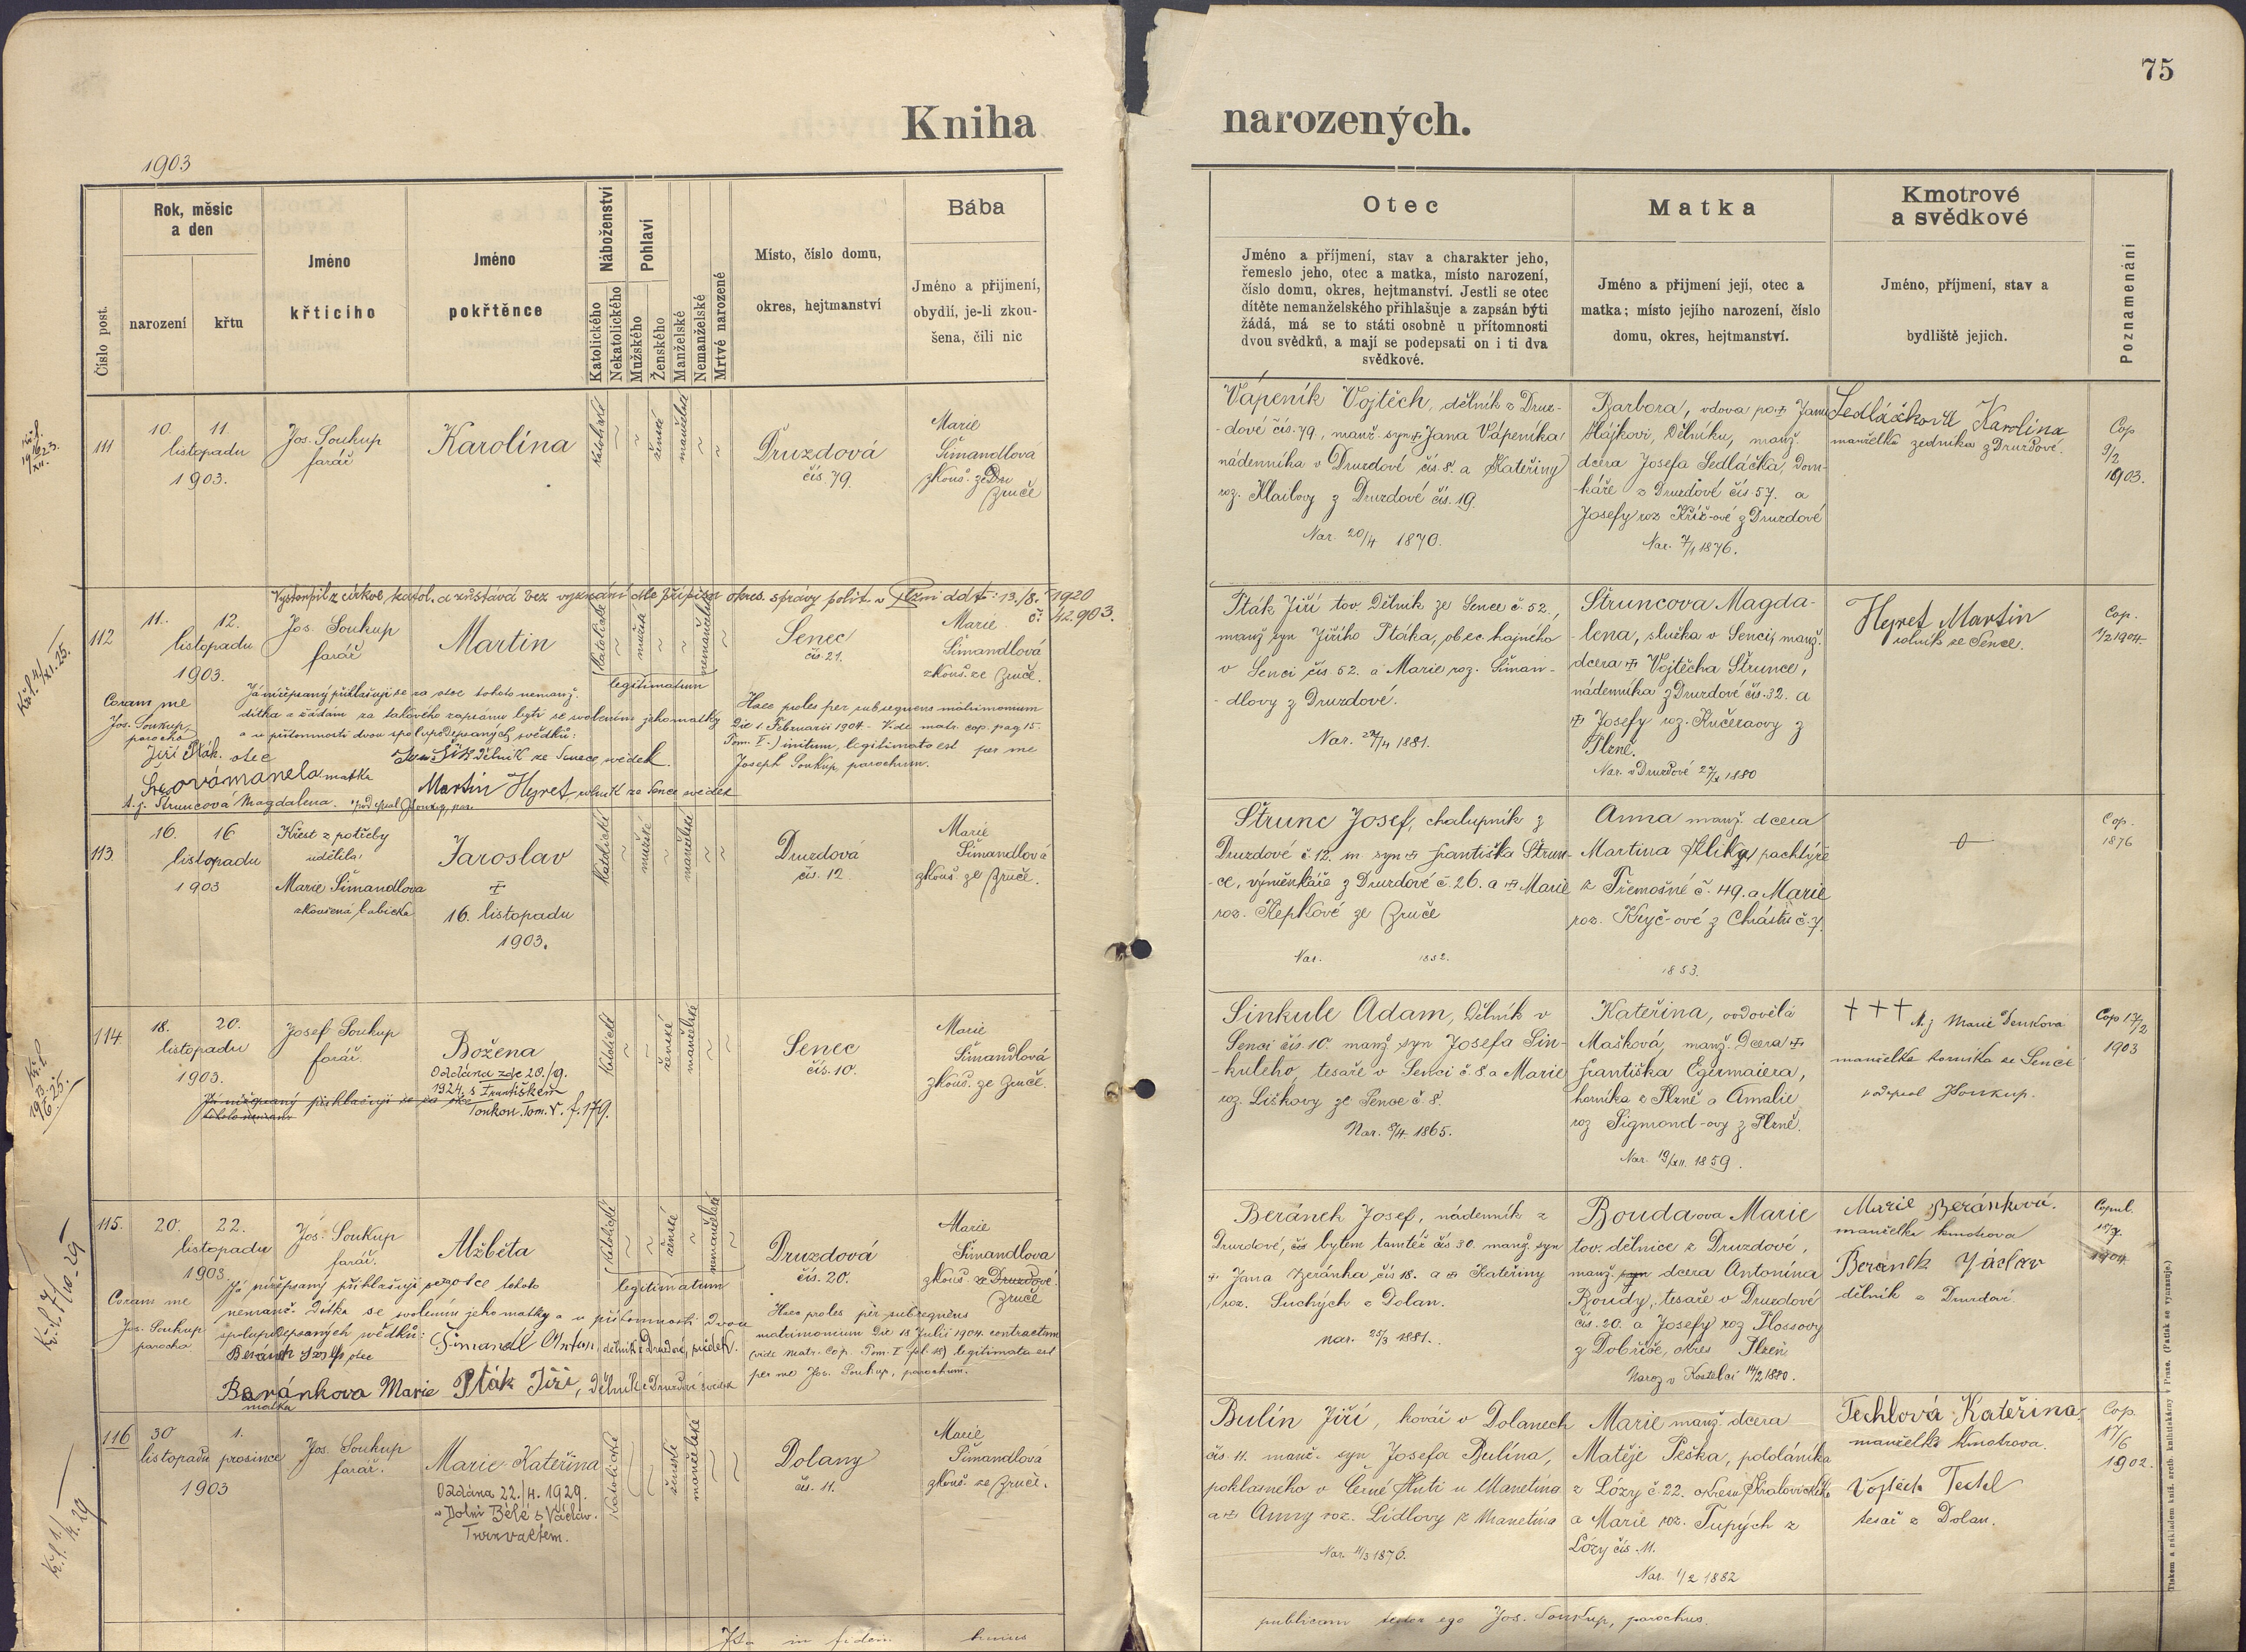 75
Kniha
narozených.
1903
Číslo post.
Rok, měsíc
a den
narození
křtu
Jméno
křtícího
Jméno
pokřtěnce
Náboženství
Katolického
Nekatolického
Pohlaví
Mužského
Ženského
Manželské
Nemanželské
Mrtvé narozené
Místo, číslo domu,
okres, hejtmanství
Bába
Jméno a příjmení,
obydlí, je-li zkou-
šena, čili nic
Otec
Jméno a příjmení, stav a charakter jeho,
řemeslo jeho, otec a matka, místo narození,
číslo domu, okres, hejtmanství. Jestli se otec
dítěte nemanželského přihlašuje a zapsán býti
žádá, má se to státi osobně u přítomnosti
dvou svědků, a mají se podepsati on i ti dva
svědkové.
Matka
Jméno a příjmení její, otec a
matka; místo jejího narození, číslo
domu, okres, hejtmanství.
Kmotrové
a svědkové
Jméno, příjmení, stav a
bydliště jejich.
Poznamenání
111
10. 11.
listopadu
1903.
Jos. Soukup
farář
Karolína
katolické
ženské
manželské
Druzdová
čís. 79.
Marie
Šimandlová
zkouš. ze
Zruče
Vápeník Vojtěch, dělník z Druz-
-dové čís. 79, manž. syn Jana Vápeníka
nádenníka v Druzdové čís. 8. a Kateřiny
roz. Klailovy z Druzdové čís. 19.
Nar. 20/4 1870.
Barbora, vdova po Janu
Hájkovi, dělníku, manž.
dcera Josefa Sedláčka, dom-
-káře z Druzdové čís. 57. a
Josefy roz Kříž-ové z Druzdové
Nar. 7/1 1876.
Sedláčková Karolina
manželka zedníka z Druzdové.
Cop
9/2
1903.
Vystoupil z církve katol. a zůstává bez vyznání dle přípisu okres. správy polit. v Plzni ddto: 13./8. 1920
č. 42.903.
112
11. 12.
listopadu
1903.
Jos. Soukup
farář
Martin
katolické
mužské
nemanželské
legitimatum
Senec
čís. 21.
Marie
Šimandlová
zkouš. ze Zruče.
Coram me
Jos. Soukup
parocho
Já nížepsaný přihlašuji se za otce tohoto nemanž.
dítka a žádám za takového zapsánu býti se svolením jeho matky
a u přítomnosti dvou spolupodepsaných svědků:
Jiří Pták. otec
dělník ze Sence, svědek.
matka
Martin Heyret, rolník ze Sence svědek
t. j. Štruncová Magdalena.
Haec proles per subsequens matrimonium
Die 1. Februarii 1904 - Vide matr. cop. pag 15.
Tom. I.) initum, legitimata est per me
Joseph Soukup, parochum.
Pták Jiří tov. dělník ze Sence č. 52.,
manž syn Jiřího Ptáka, obec. hajného
v Senci čís 52. a Marie roz. Šiman-
-dlovy z Druzdové.
Nar. 24/4 1881.
Štruncova Magda-
-lena, služka v Senci, manž.
dcera Vojtěcha Štrunce,
nádenníka z Druzdové čís. 32. a
Josefy roz. Kučeraovy z
Plzně.
Heyret Martin
rolník ze Sence.
Cop.
1/2 1904.
113
16. 16
listopadu
1903
Křest z potřeby
udělila
Marie Šimandlova
zkoušená babička
Jaroslav
16. listopadu
1903.
katolické
mužské
manželské
Druzdová
čís. 12.
Marie
Šimandlová
zkouš. ze Zruče.
Štrunc Josef, chalupník z
Druzdové č. 12. m syn Františka Štrun-
-ce, výměnkáře z Druzdové č. 26. a Marie
roz. Řepkové ze Zruče
Nar. 1852.
Anna manž. dcera
Martina Kliky, pachtýře
z Třemošné č. 49. a Marie
roz. Kryč-ové z Chrástu č. 7.
1853.
Cop.
1876
114
18. 20.
listopadu
1903.
Josef Soukup
farář.
Božena
Oddána zde 20./9.
1924 s Františkem
Tom. V. f. 179.
Já nížepsaný přihlašuji se za otce
katolické
ženské
manželské
Senec
čís. 10.
Marie
Šimandlová
zkouš. ze Zruče.
Sinkule Adam, dělník v
Senci čís. 10. manž. syn Josefa Sin-
-kuleho, tesaře v Senci č. 8. a Marie
roz. Liškovy ze Sence č. 8.
Nar. 8/4 1865.
Kateřina, ovdovělá
Mašková, manž. dcera
Františka Egermaiera,
horníka z Plzně a Amalie
roz Sigmond-ovy z Plzně.
Nar. 19/XII. 1859.
+++ t.j Marie Denková
manželka horníka ze Sence
podepsal JSoukup.
Cop 17/2
1903
115.
20. 22.
listopadu
1903
Jos. Soukup
farář.
Alžběta
katolické
ženské
nemanželské
legitimatum
Druzdová
čís. 20.
Marie
Šimandlova
zkouš. ze Druzdové
Zruče
Coram me
Jos. Soukup
parocho
Já nížepsaný přihlašuji se za otce tohoto
nemanž. dítka se svolením jeho matky a u přítomnosti dvou
spolupodepsaných svědků:
Beránek Josef, otec
Šimandl Antan, dělník z Druzdové, svědek.
Baránkova Marie
matka
Pták Jiří, dělník z Druzdové svědek
Haec proles per subsequens
matrimonium Die 18 Julii 1904. contractum
(vide Matr. Cop. Tom. I fol. 18) legitimata est
per me Jos. Soukup, parochum.
Beránek Josef, nádenník z
Druzdové, čís bytem tamtéž čís 30. manž. syn
Jana Beránka, čís 18. a Kateřiny
roz. Suchých z Dolan.
nar. 25/3 1881.
Boudaova Marie
tov. dělnice z Druzdové,
manž. syn dcera Antonína
Boudy, tesaře v Druzdové
čís. 20. a Josefy roz Plossovy
z Dobříše, okres Plzeň
Naroz v Kostelci 14/2 1880.
Marie Beránková.
manželka kmotrova
Beránek Václav
dělník z Druzdové.
Copul.
1904
116
30 1.
listopadu prosince
1903
Jos. Soukup
farář.
Marie Kateřina
Oddána 22./4. 1929.
v Dolní Bělé s Václav.
katolické
ženské
manželské
Dolany
čís. 11.
Marie
Šimandlová
zkouš. ze Zruče.
Bulín Jiří, kovář v Dolanech
čís. 11. manž. syn Josefa Bulína,
poklasného v Černé Huti u Manetína
a Anny roz. Lídlovy z Manetína
Nar. 11/3 1876.
Marie manž. dcera
Matěje Peška, pololáníka
z Lózy č. 22. okresu Kralovického
a Marie roz. Tupých z
Lózy čís. 11.
Nar. 1/2 1882
Techlová Kateřina,
manželka kmotrova.
Vojtěch Techl
tesař z Dolan.
Cop.
17/6
1902.
Ita in fidem hujus
publicam testor ego Jos. Soukup, parochus.